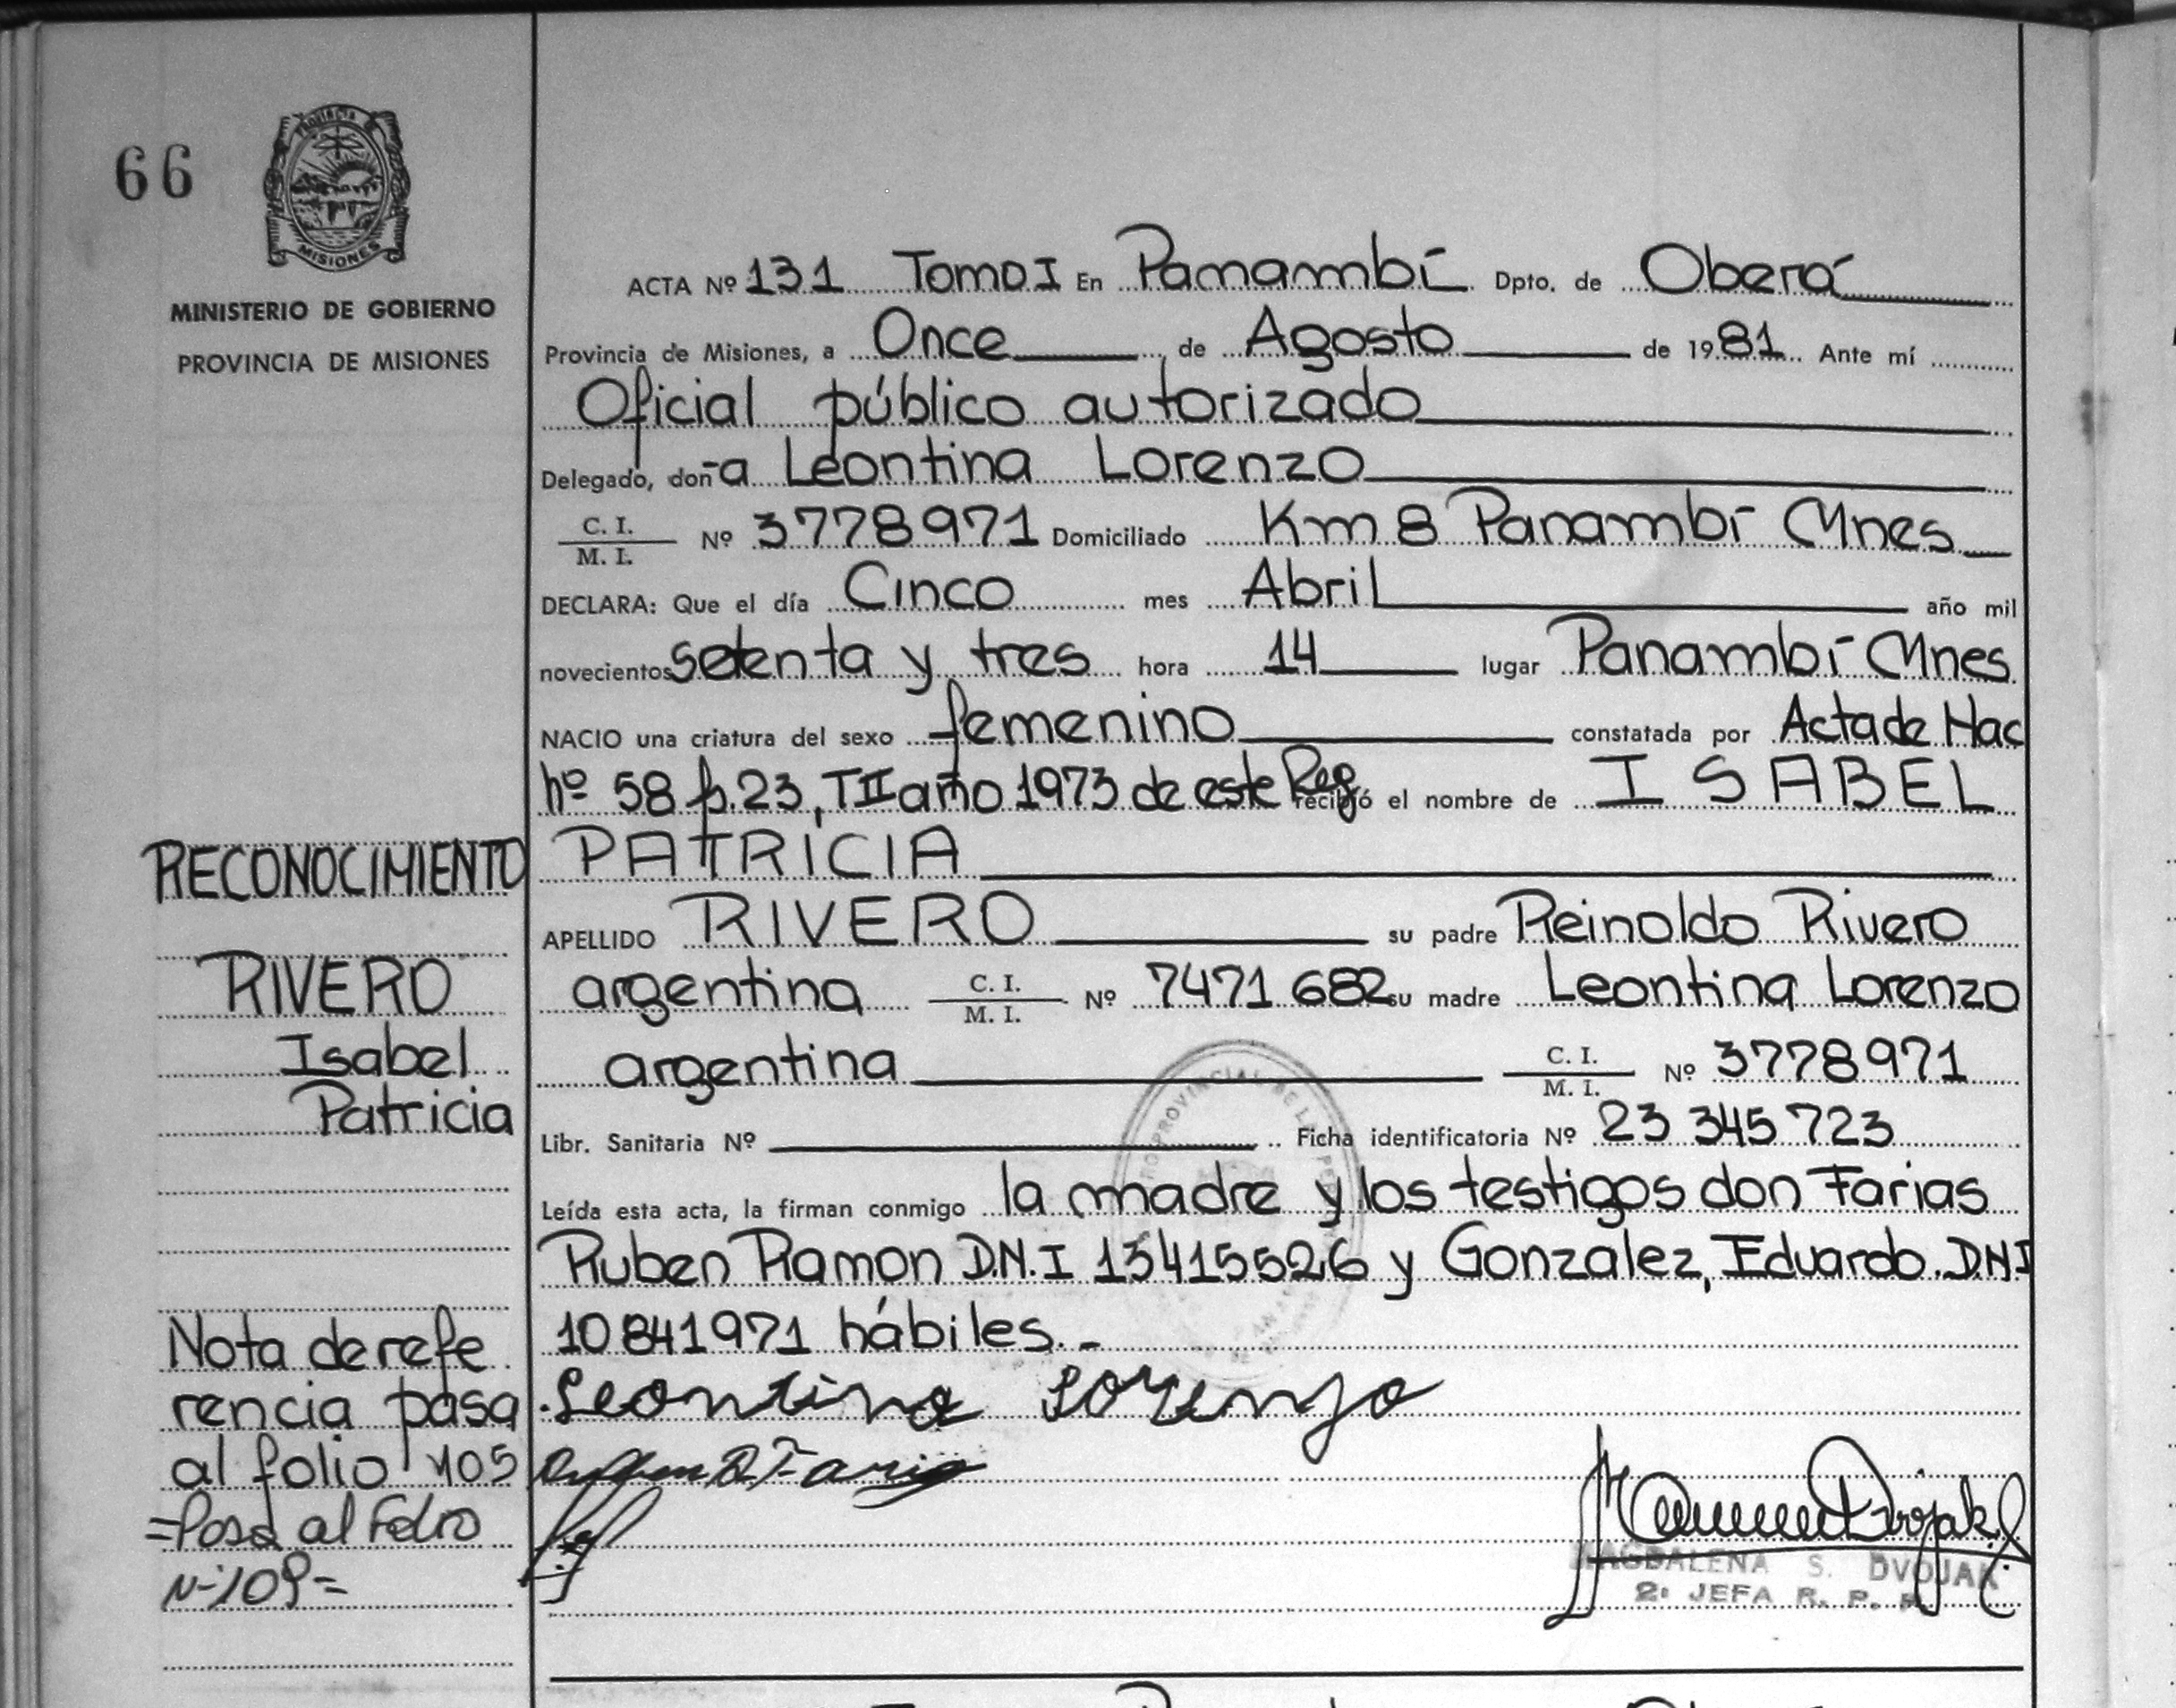 66
PROVINCIA
MISIONES
MINISTERIO DE GOBIERNO
PROVINCIA DE MISIONES
ACTA Nº 131 Tomo I En Panambí Dpto. de Oberá
Provincia de Misiones, a Once de Agosto de 1981 Ante mí
Oficial público autorizado
Delegado, doña Leontina Lorenzo
C. I.
M. I. Nº 3778971 Domiciliado Km 8 Panambí Mnes
DECLARA: Que el día Cinco mes Abril año mil
novecientos setenta y tres hora 14 lugar Panambí Mnes
NACIO una criatura del sexo femenino constatada por Acta de Nac
nº 58 f.23, TII año 1973 de este Reg recibió el nombre de ISABEL
PATRICIA
RECONOCIMIENTO
APELLIDO RIVERO su padre Reinoldo Rivero
RIVERO
argentina C. I. M. I. Nº 7471 682 su madre Leontina Lorenzo
Isabel
argentina C. I. M. I. Nº 3778971
Patricia
Libr. Sanitaria Nº Ficha identificatoria Nº 23 345 723
Leída esta acta, la firman conmigo la madre y los testigos don Farias
Ruben Ramon D.N.I 13415526 y Gonzalez, Eduardo. D.N.I
10841971 hábiles.-
Nota de refe
rencia pasa
al folio 105
=Pasa al Folio
Nº 109=
Leontina Lorenzo
Ruben R. Faria
MAGDALENA S. DVOJAK
2º JEFA R. P. P.